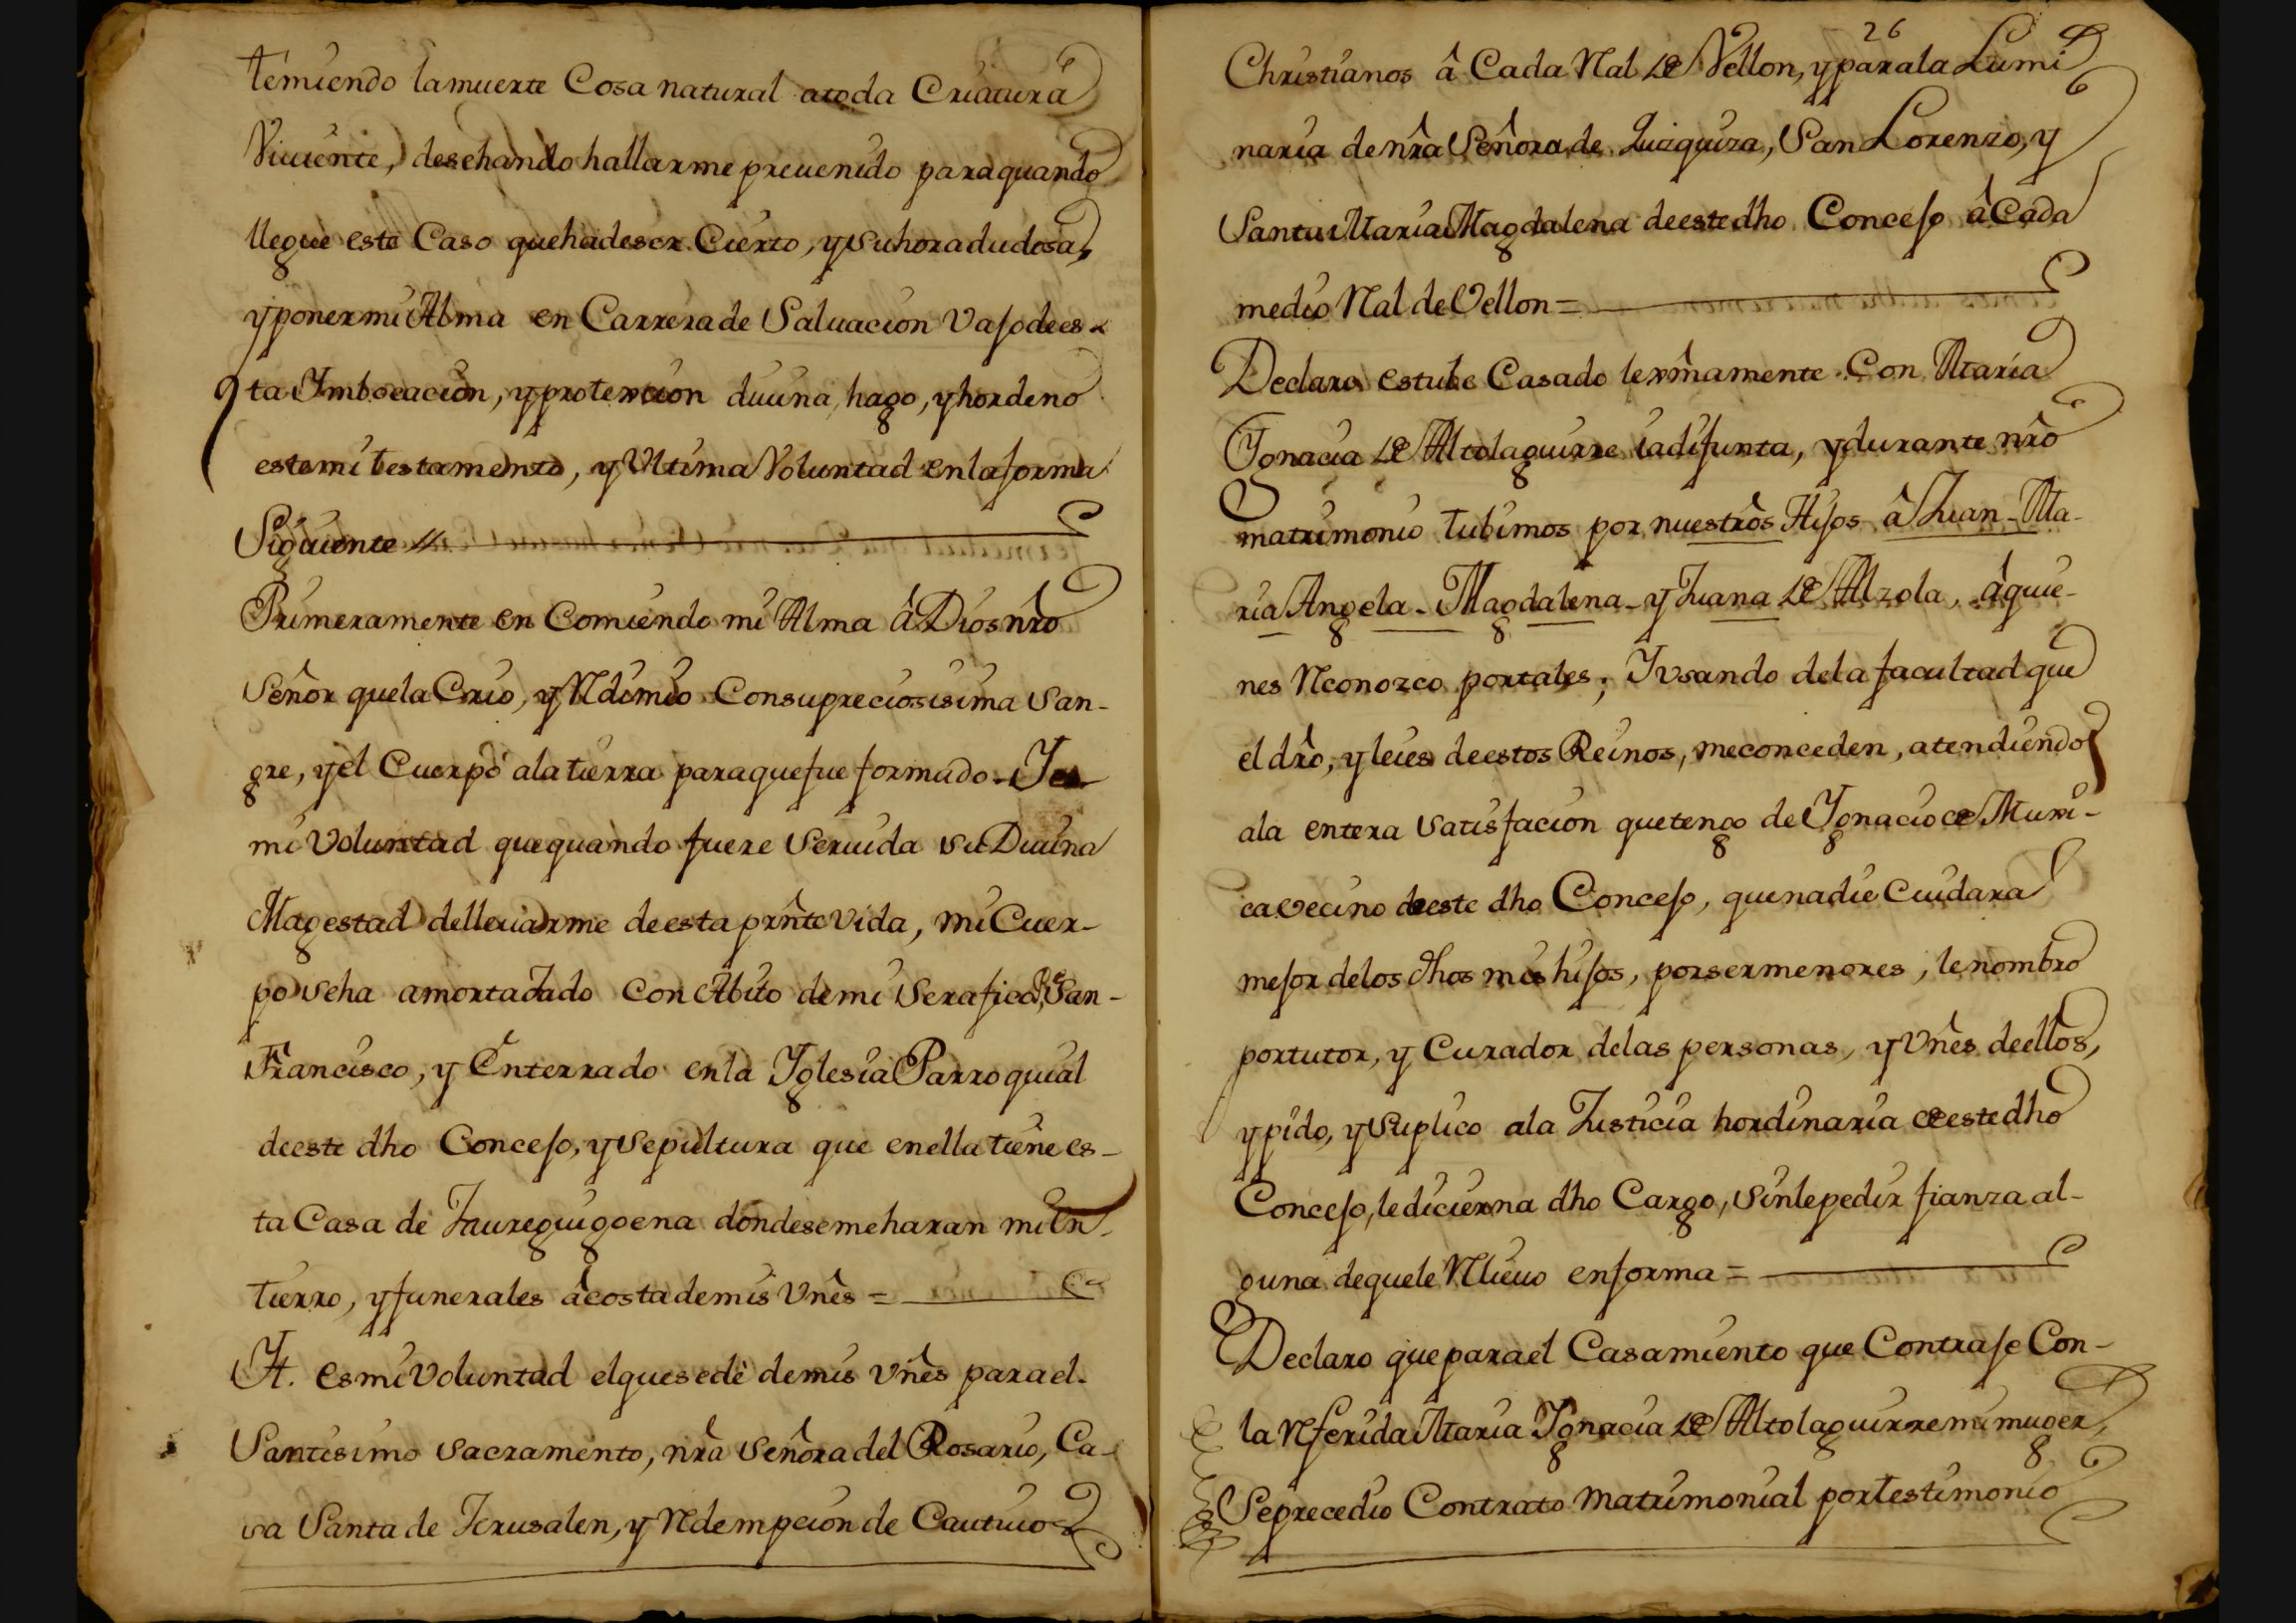 temiendo la muerte Cosa natural atoda Criatura
Viuiente, desehando hallarme preuenido para quando
llegue este Caso que hadeser Cierto, y su hora dudosa,
y poner mi Alma en Carrera de Saluacion Vaso de es
ta Imbocacion, y protencion diuina, hago, y hordeno
este mi testamento, y Ultima Voluntad en la forma
Siguiente //
Primeramente en Comiendo mi Alma â Dios nrô
Señor que la Crio, y Rdimio Consupreciosisima San-
gre, y el Cuerpo ala tierra para que fue formado - Y es
mi Voluntad que quando fuere Seruida su Diuina
Magestad delleuarme de esta prñte Vida, mi Cuer-
po seha amortajado con Abito de mi Serafico Pe San-
Francisco, y Enterrado en la Yglesia Parroquial
de este dho Concejo, y Sepultura que en ella tiene es-
ta Casa de Jaureguigoena donde se me haran mi En-
tierro, y funerales âcosta de mis Vñes =
Yt. es mi Voluntad el que se dè de mis vñes para el
Santisimo Sacramento, nrâ Señora del Rosario, Ca-
sa Santa de Jerusalen, y Rdempcion de Cautiuos
26
Christianos â Cada Ral de Vellon, y para la Lumi
naria de nrâ Señora de Quizquiza, San Lorenzo, y
Santa Maria Magdalena de este dho Concejo â Cada
medio Ral de Vellon =
Declaro estube Casado lexmâmente Con Maria
Ygnacia de Altolaguirre ia difunta, y durante nrô
matrimonio tubimos por nuestrôs Hijos â Juan - Ma-
ria Angela - Magdalena - y Juana de Alzola, âquie-
nes Rconozco por tales; Y vsando de la facultad que
el drô, y leies de estos Reinos, me conceden, atendiendo
ala entera Satisfacion que tengo de Ygnacio de Muxi-
ca vecino de este dho Concejo, que nadie Cuidara
mejor de los dhos mis hijos, por ser menores, le nombro
por tutor, y Curador de las personas, y Vñes de ellos,
y pido, y Suplico ala Justicia hordinaria de este dho
Concejo, le dicierna dho Cargo, Sin le pedir fianza al-
guna de que le Rlieuo en forma =
Declaro que para el Casamiento que Contraje Con-
la Rferida Maria Ygnacia de Altolaguirre mi muger,
Se precedio Contrato matrimonial por testimonio